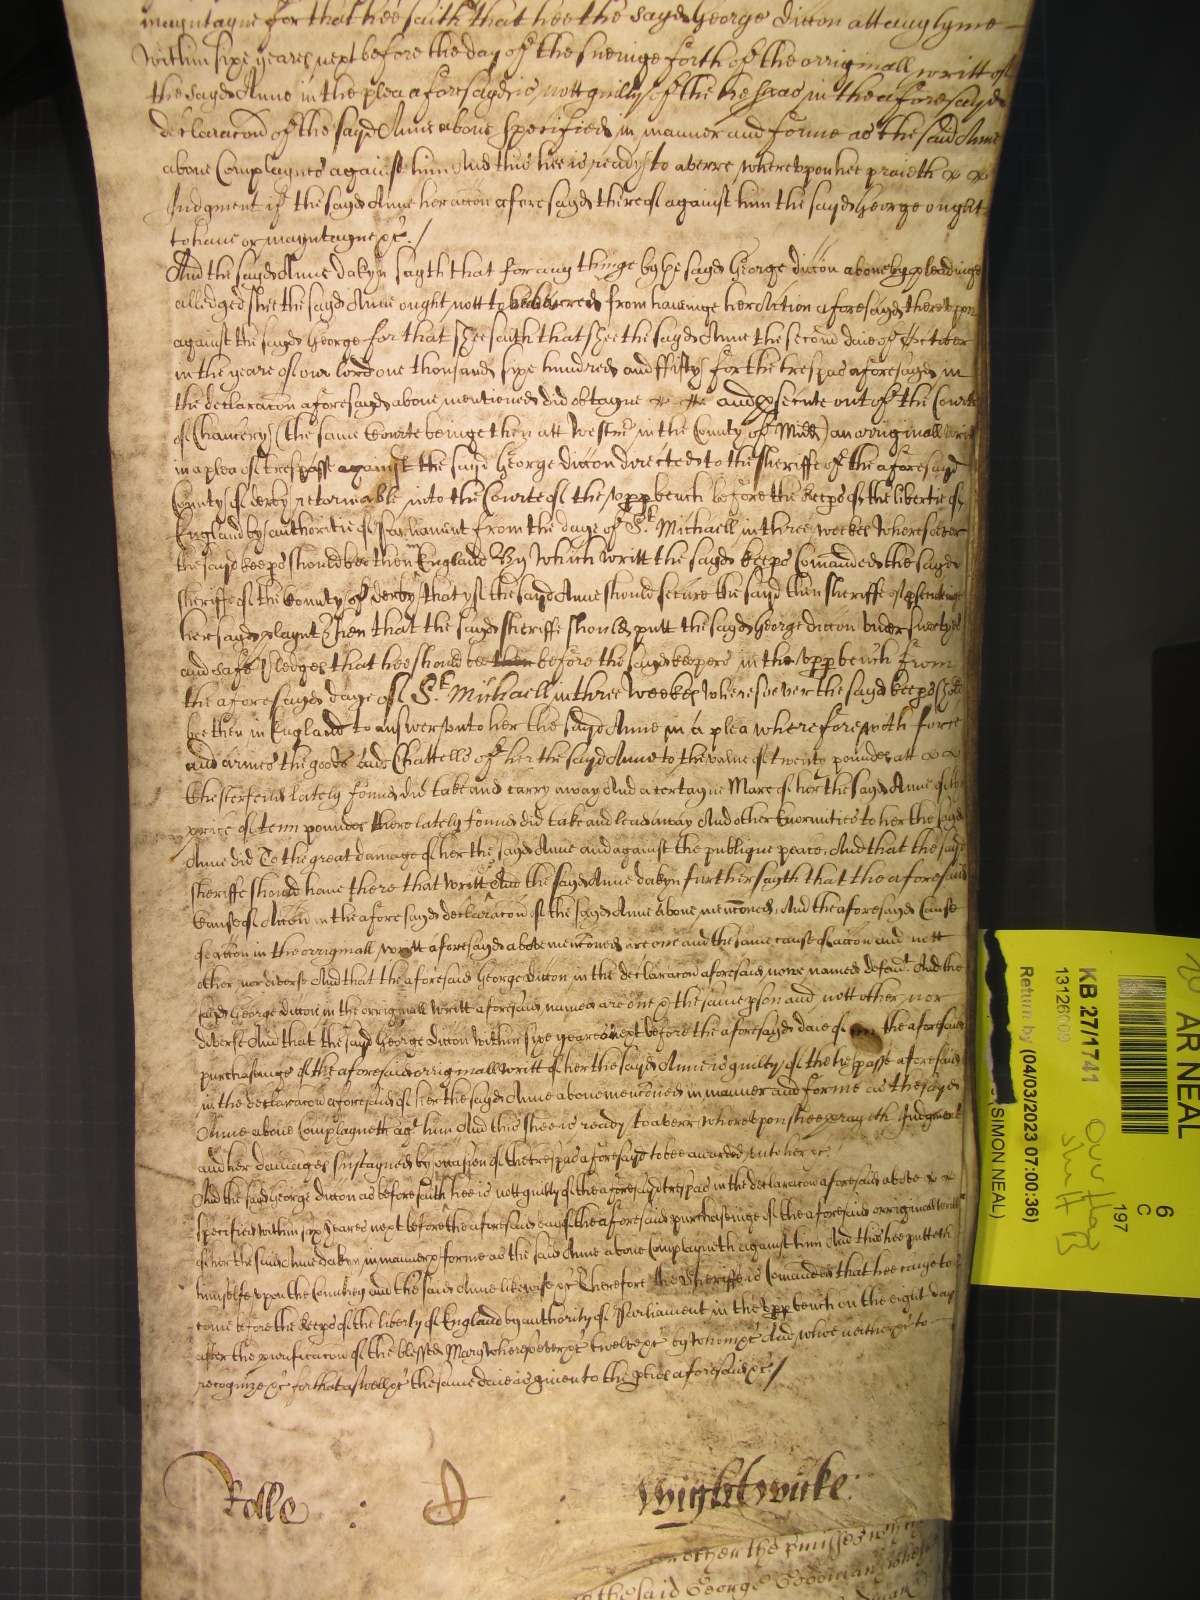 mayntayne for that hee saith that hee the sayd George Ditton att any tyme
within sixe yeares next before the day of the sueinge forth of the orriginall writt of
the sayd Anne in the plea aforesayd is nott guilty of the trespas in the aforesayd
declaracon of the sayd Anne above specified in manner and forme as the said Anne
above Complaynes against him And this hee is ready to averre whereupon hee praieth
Judgment if the sayd Anne her accon aforesayd thereof against him the sayd George ought
to have or mayntayne &c /
And the sayd Anne Dakyn sayth that for any thinge by the sayd George Ditton above by pleadinge
alledged shee the sayd Anne ought nott to bee barred from haveinge her Action aforesayd thereupon
against the sayd George for that shee saith that shee the sayd Anne the second daie of October
in the yeare of our lord one thousand sixe hundred and fifty for the trespas aforesayd in
the declaracon aforesayd above mentioned did obtayne and psecute out of the Courte
of Chancery (the same Courte beinge then att Westmr in the County of Midd) an orriginall writt
in a plea of trespasse against the sayd George Ditton directed to the Sheriffe of the aforesayd
County of Derby retornable into the Courte of the upp bench before the keeps of the libertie of
England by authoritie of Parliament from the daye of St Michaell in three weekes wheresoever
the sayd keeps should bee then in England By which writt the sayd keeps Comanded the sayd
sheriffe of the County of Derby that yf the sayd Anne should secure the sayd then sheriffe of psecutinge
her sayd playnt Then that the sayd sheriffe should putt the sayd George Ditton under suertyes
and safe pledges that hee should bee before the sayd keepers in the upp bench from
the aforesayd daye of St Michaell in three weekes wheresoever the sayd keeps should
bee then in England to answer unto her the sayd Anne in a plea wherefore with force
and armes the goods and Chattells of her the sayd Anne to the value of twenty poundes att
Chesterfeild lately found did take and carry away And a certayne Mare of her the sayd Anne of the
price of tenn poundes there lately found did take and lead away And other Enormities to her the sayd
Anne did To the great damage of her the sayd Anne and against the publique peace And that the sayd
sheriffe should have there that writt And the sayd Anne Dakyn further sayth that the aforesaid
Cause of Accon in the aforesayd declaracon of the sayd Anne above menconed And the aforesayd Cause
of accon in the orriginall writt aforesayd above menconed are one and the same cause of accon and nott
other nor diverse And that the aforesaid George Ditton in the declaracon aforesaid nowe named Defendt And the
sayd George Ditton in the orriginall writt aforesaid named are one & the same pson and nott other nor
diverse And that the sayd George Ditton within sixe yeares next before the aforesayd daie of the aforesaid
purchaseinge of the aforesaid orriginall writt of her the sayd Anne is guilty of the trespasse aforesaid
in the declaracon aforesaid of her the sayd Anne above menconed in manner and forme as the sayd
Anne above Complayneth agt him And this shee is ready to averr whereupon shee prayeth Judgment
and her damages sustayned by occasion of the trespas aforesayd to bee awarded unto her &c
And the sayd George Ditton as before saith hee is nott guilty of the aforesayd trespas in the declaracon aforesaid above
specified within six yeares next before the aforesaid daie of the aforesaid purchaseinge of the aforesaid orriginall writt
of her the said Anne Dakyn in manner & forme as the said Anne above Complayneth against him And this hee putteth
himselfe upon the Countrey and the said Anne likewise &c Therefore the Sheriffe is Comanded that hee cause to
come before the keeps of the liberty of England by authority of Parliament in the upp bench on the eight day
after the purificacon of the blessed Mary wheresoever &c twelve &c by whom &c And who neither &c to
recognize &c for that aswell &c the same daie is given to the pties aforesaid &c /
Rolle : : Wightwicke
whether the pmisses
the said George
AR NEAL
6
C
197
KB 27/1741
13126609
Return by (04/03/2023 07:00:36)
(SIMON NEAL)